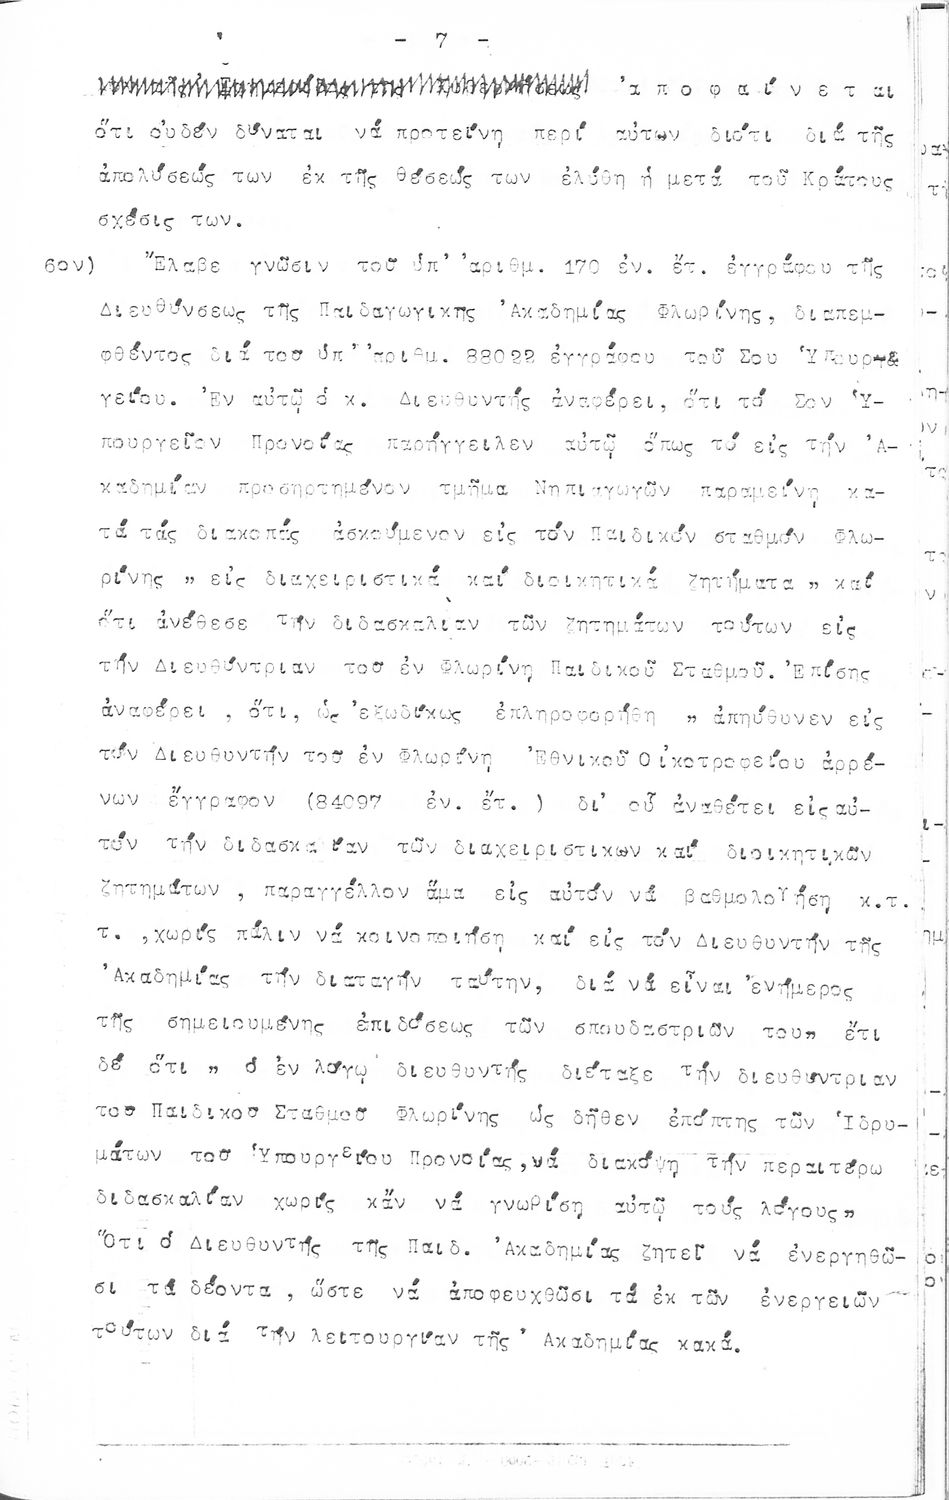 - 7 -
ἀ π ο φ α ί ν ε τ αι
ὅτι οὐδέν δύναται νά προτείνη περί αὐτων διότι διά τῆς
ἀπολύσεώς των ἐκ τῆς θέσεώς των ἐλύθη ἡ μετά τοῦ Κράτους
σχέσις των.
6ον) Ἔλαβε γνῶσιν τοῦ ὑπ' 'αριθμ. 170 ἐν. ἔτ. ἐγγράφου τῆς
Διευθύνσεως τῆς Παιδαγωγικης Ἀκαδημίας Φλωρίνης, διαπεμ-
φθέντος διά του ὑπ' 'αριθμ. 88022 ἐγγράφου τοῦ Σου Ὑπουρ
γείου. Ἐν αὐτῷ ὁ κ. Διευθυντής ἀναφέρει, ὅτι τό Σον Ὑ-
πουργεῖον Προνοίας παρήγγειλεν αὐτῷ ὅπως τό εἰς τήν Ἀ-
καδημίαν προσηρτημένον τμῆμα Νηπιαγωγῶν παραμείνη κα-
τά τάς διακοπάς ἀσκούμενον εἰς τόν Παιδικόν σταθμόν Φλω-
ρίνης " εἰς διαχειριστικά καί διοικητικά ζητήματα " καί
ὅτι ἀνέθεσε τήν διδασκαλιαν τῶν ζητημάτων τούτων εἰς
τήν Διευθύντριαν του ἐν Φλωρίνη Παιδικοῦ Σταθμοῦ. Ἐπίσης
ἀναφέρει , ὅτι, ὡς 'εξωδίκως ἐπληροφορήθη " ἀπηύθυνεν εἰς
τόν Διευθυντήν του ἐν Φλωρίνη Ἐθνικοῦ Οἰκοτροφείου ἀρρέ-
νων ἔγγραφον (84097 ἐν. ἔτ. ) δι' οὗ ἀναθέτει εἰς αὐ-
τόν τήν διδασκα ίαν τῶν διαχειριστικων καί διοικητικῶν
ζητημάτων , παραγγέλλον ἅμα εἰς αὐτόν νά βαθμολογήση κ.τ.
τ. ,χωρίς πάλιν νά κοινοποιήση καί εἰς τόν Διευθυντήν τῆς
Ἀκαδημίας τήν διαταγήν ταύτην, διά νά εἶναι 'ενήμερος
τῆς σημειουμένης ἐπιδόσεως τῶν σπουδαστριῶν του" ἔτι
δέ ὅτι " ὁ ἐν λόγῳ διευθυντής διέταξε τήν διευθυντριαν
του Παιδικου Σταθμου Φλωρίνης ὡς δῆθεν ἐπόπτης τῶν Ἱδρυ-
μάτων του Ὑπουργείου Προνοίας, νά διακόψη τήν περαιτέρω
διδασκαλίαν χωρίς κἄν νά γνωρίση αὐτῷ τούς λόγους"
Ὅτι ὁ Διευθυντής τῆς Παιδ. Ἀκαδημίας ζητεῖ νά ἐνεργηθῶ-
σι τά δέοντα , ὥστε νά ἀποφευχθῶσι τά ἐκ τῶν ἐνεργειῶν
τούτων διά τήν λειτουργίαν τῆς Ἀκαδημίας κακά.